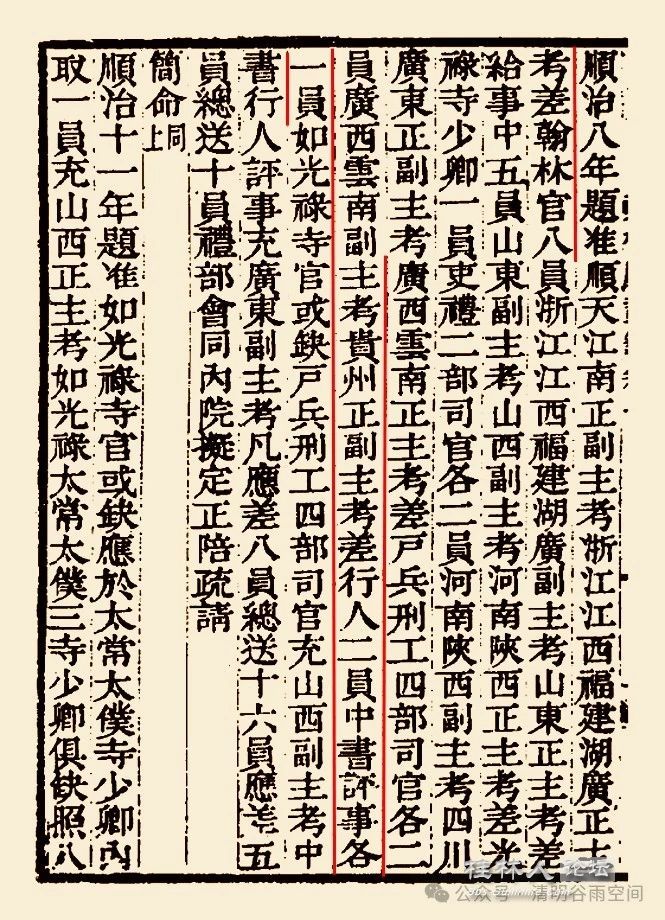 順治八年題准順天江南正副主考浙江江西福建湖廣正主
考差翰林官八員浙江江西福建湖廣副主考山東正主考差
給事中五員山東副主考山西副主考河南陝西正主考差光
祿寺少卿一員吏禮二部司官各二員河南陝西副主考四川
廣東正副主考廣西雲南正主考差戸兵刑工四部司官各二
員廣西雲南副主考貴州正副主考差行人二員中書評事各
一員如光祿寺官或缺戸兵刑工四部司官充山西副主考中
書行人評事充廣東副主考凡應差八員總送十六員應差五
員總送十員禮部會同內院擬定正陪疏請
簡命同上
順治十一年題准如光祿寺官或缺應於太常太僕寺少卿內
取一員充山西正主考如光祿太常太僕三寺少卿俱缺照八
桂林人论坛
公众号 清明谷雨空间